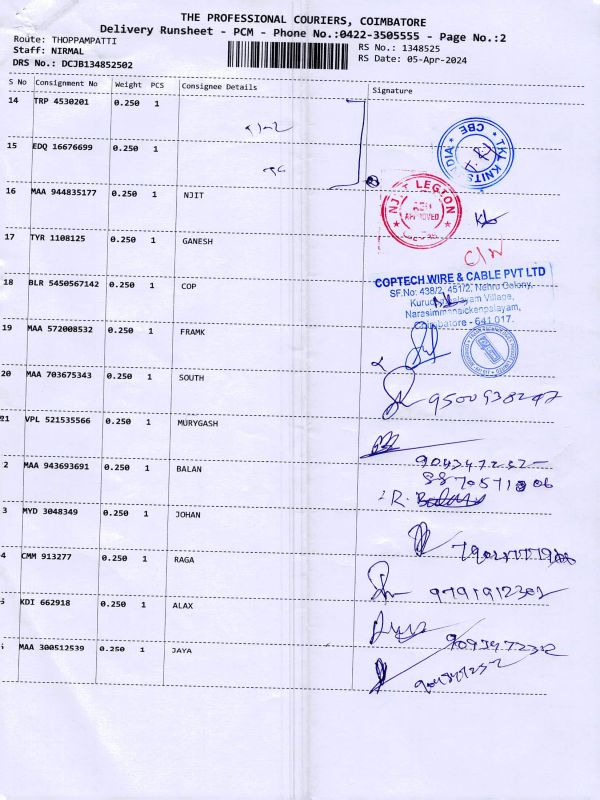 THE PROFESSIONAL COURIERS, COIMBATORE
Delivery Runsheet - PCM - Phone No.:0422-3505555 - Page No.:2
Route: THOPPAMPATTI
RS No.: 1348525
Staff: NIRMAL
RS Date: 05-Apr-2024
DRS No.: DCJB134852502
S No Consignment No Weight PCS Consignee Details Signature
14 TRP 4530201 0.250 1
15 EDQ 16676699 0.250 1
CBE
TKL KNITS INDIA
16 MAA 944835177 0.250 1 NJIT
LEGION
APPROVED
17 TYR 1108125 0.250 1 GANESH
18 BLR 5450567142 0.250 1 COP
COPTECH WIRE & CABLE PVT LTD
SF.No: 438/2, 451/2, Nehru Colony,
Village,
Narasimmanaickenpalayam,
Coimbatore - 641 017.
19 MAA 572008532 0.250 1 FRAMK
20 MAA 703675343 0.250 1 SOUTH
9500938247
21 VPL 521535566 0.250 1 MURYGASH
9043472252
2 MAA 943693691 0.250 1 BALAN
R.
3 MYD 3048349 0.250 1 JOHAN
4 CMM 913277 0.250 1 RAGA
9791912302
5 KDI 662918 0.250 1 ALAX
MAA 300512539 0.250 1 JAYA